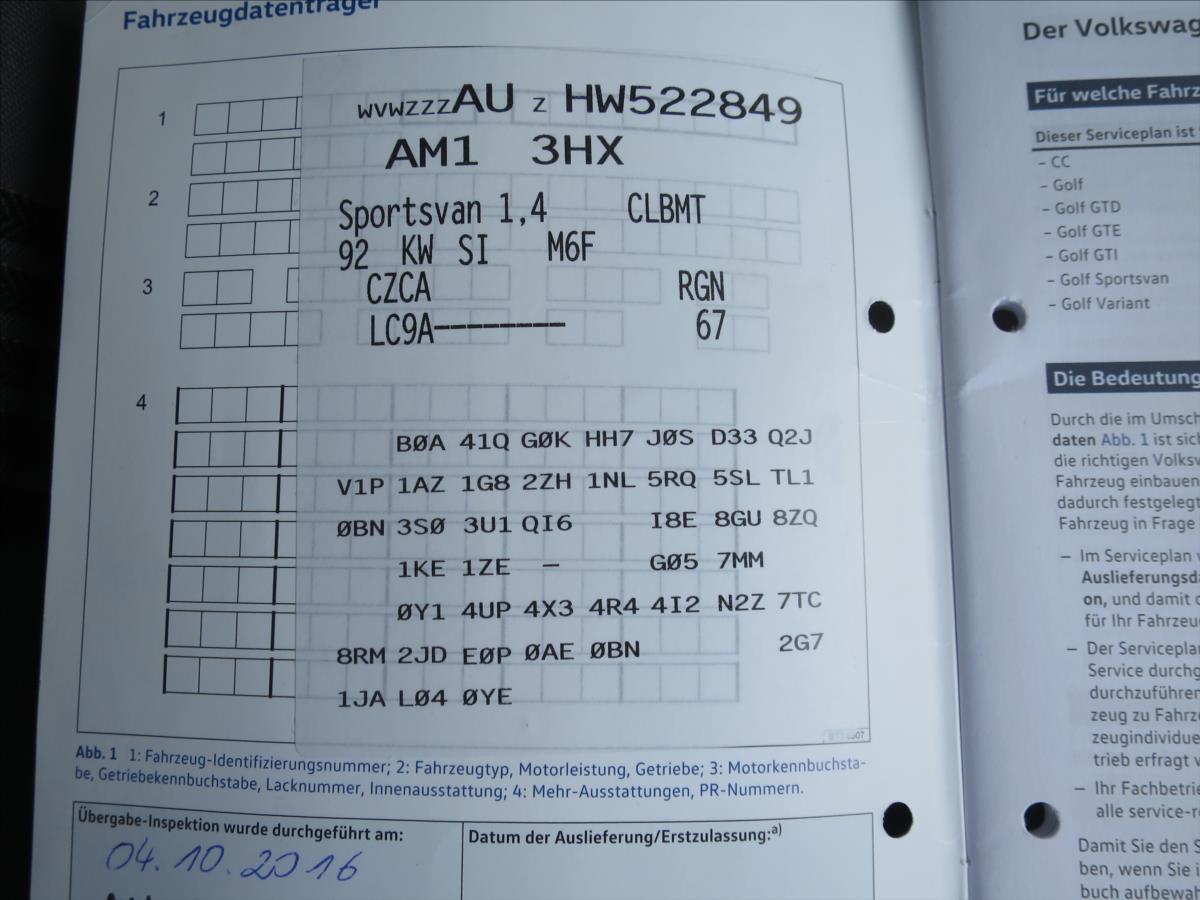 Fahrzeugdatenträger
1
WVWZZZAU Z HW522849
AM1 3HX
2
Sportsvan 1,4 CLBMT
92 KW SI M6F
3
CZCA RGN
LC9A-------- 67
4
BØA 41Q GØK HH7 JØS D33 Q2J
V1P 1AZ 1G8 2ZH 1NL 5RQ 5SL TL1
ØBN 3SØ 3U1 QI6 I8E 8GU 8ZQ
1KE 1ZE – GØ5 7MM
ØY1 4UP 4X3 4R4 4I2 N2Z 7TC
8RM 2JD EØP ØAE ØBN 2G7
1JA LØ4 ØYE
Abb. 1 1: Fahrzeug-Identifizierungsnummer; 2: Fahrzeugtyp, Motorleistung, Getriebe; 3: Motorkennbuchsta-
be, Getriebekennbuchstabe, Lacknummer, Innenausstattung; 4: Mehr-Ausstattungen, PR-Nummern.
Übergabe-Inspektion wurde durchgeführt am:
04.10.2016
Datum der Auslieferung/Erstzulassung:a)
Der Volkswag
Für welche Fahrz
Dieser Serviceplan ist
– CC
– Golf
– Golf GTD
– Golf GTE
– Golf GTI
– Golf Sportsvan
– Golf Variant
Die Bedeutung
Durch die im Umsch
daten Abb. 1 ist sich
die richtigen Volksw
Fahrzeug einbauen
dadurch festgelegt
Fahrzeug in Frage
– Im Serviceplan
Auslieferungsda
on, und damit
für Ihr Fahrzeu
– Der Serviceplan
Service durchg
durchzuführen
zeug zu Fahrze
zeugindividue
trieb erfragt
– Ihr Fachbetrie
alle service-r
Damit Sie den S
ben, wenn Sie i
buch aufbewah